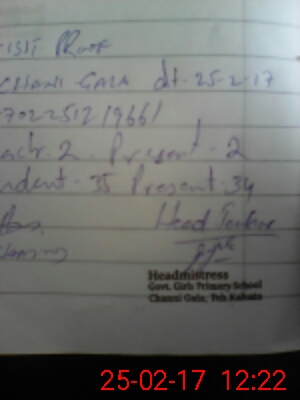 ISIT PROOF
CHANI GALA dt. 25-2-17
Teachr. 2. Present - 2
udent - 35 Present 34
Head Teacher
Headmistress
Govt. Girls Primary School
Channi Gala, Teh Kahuta
25-02-17 12:22